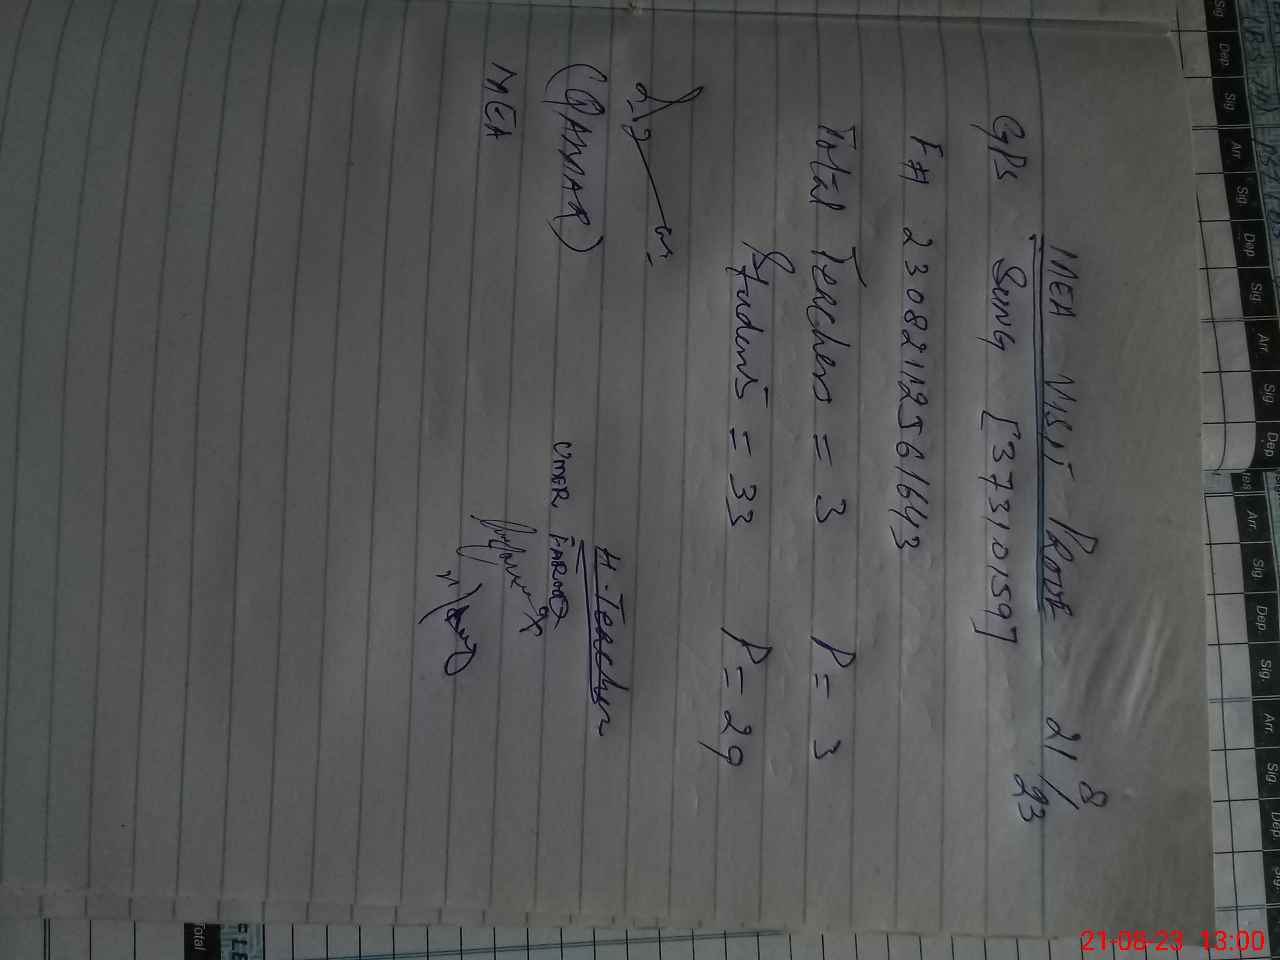 MEA Visit Proof 21/8/23
GPS Sung [37310159]
F# 23082112561643
Total Teachers = 3 P = 3
Students = 33 P = 29
(QAMAR)
MEA
H-Teacher
UMER FAROOQ
21-08-23 13:00
Sig. Dep. Sig. Arr. Sig. Dep. Sig. Arr. Sig. Dep.
Arr. Sig. Dep. Sig. Arr. Sig. Dep. Sig.
Total